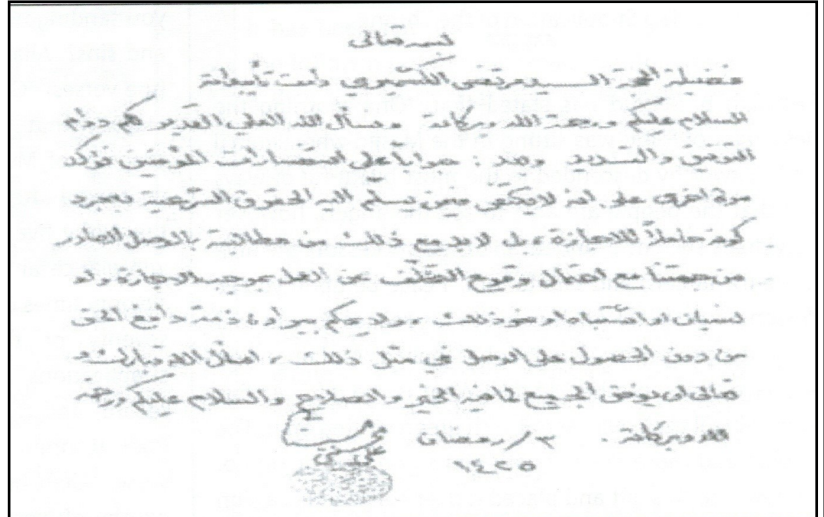 بسمه تعالى
فضيلة الحجة السيد مرتضى الكشميري دامت تأييداته
السلام عليكم ورحمة الله وبركاته ونسأل الله العلي القدير لكم دوام
التوفيق والتسديد وبعد : جواباً على استفسارات المؤمنين نؤكد
مرة اخرى على انه لا يكتفى فيمن يسلّم اليه الحقوق الشرعية بمجرد
كونه حاملاً للاجازة ، بل لابد مع ذلك من مطالبته بالوصل الصادر
من جهتنا مع احتمال وقوع التخلّف عن العمل بموجب الاجازة ولو
لنسيان او اشتباه او نحو ذلك ، ولا يحكم ببراءة ذمة دافع الحق
من دون الحصول على الوصل في مثل ذلك ، اسأل الله تبارك و
تعالى ان يوفق الجميع لما فيه الخير والصلاح والسلام عليكم ورحمة
الله وبركاته . ٣ / رمضان
١٤٢٥